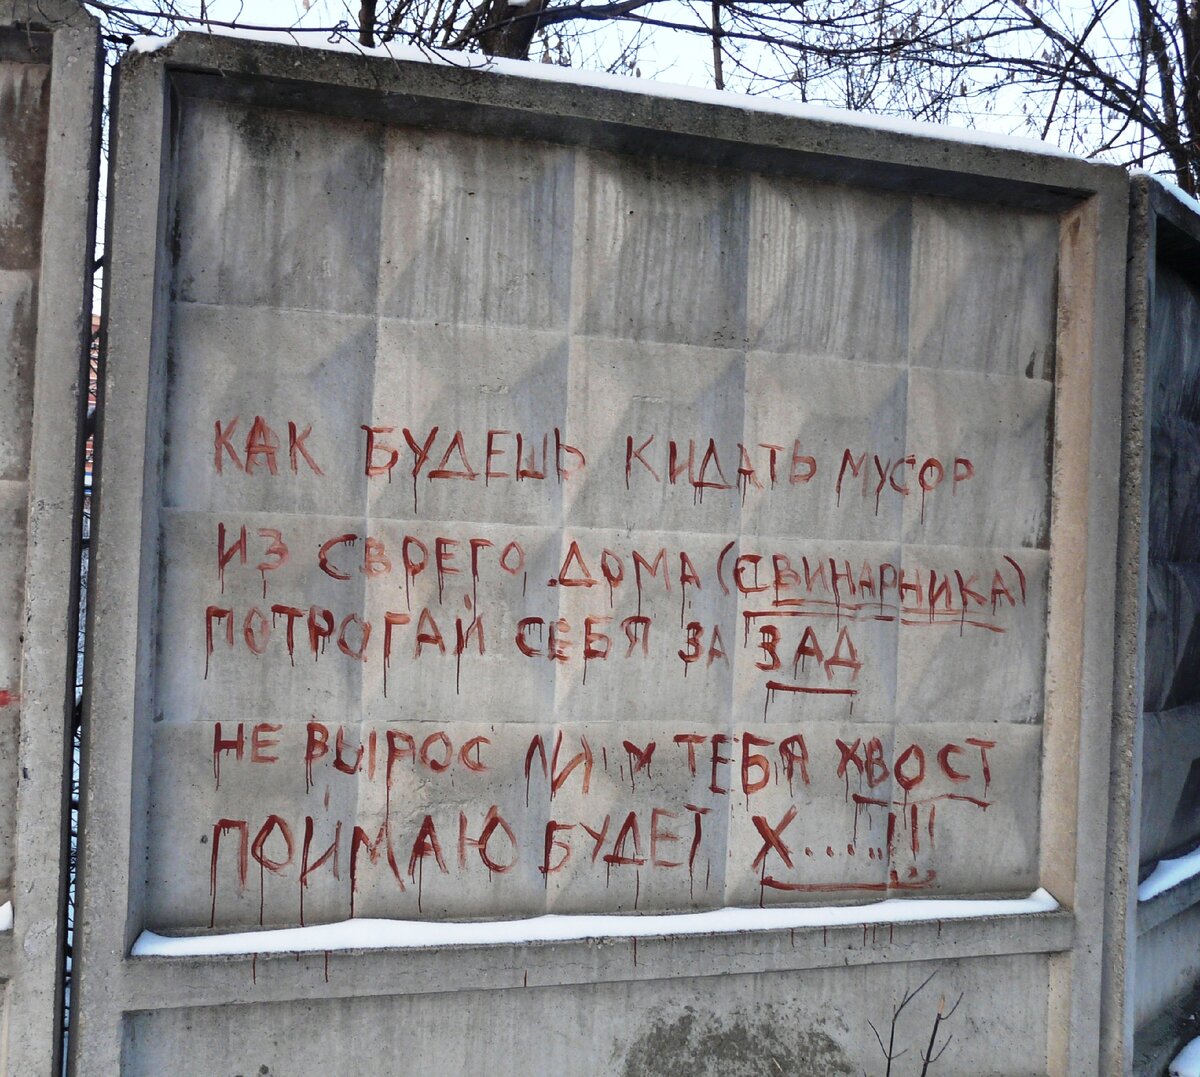 КАК БУДЕШЬ КИДАТЬ МУСОР
ИЗ СВОЕГО ДОМА (СВИНАРНИКА)
ПОТРОГАЙ СЕБЯ ЗА ЗАД
НЕ ВЫРОС ЛИ У ТЕБЯ ХВОСТ
ПОЙМАЮ БУДЕТ Х.....!!!